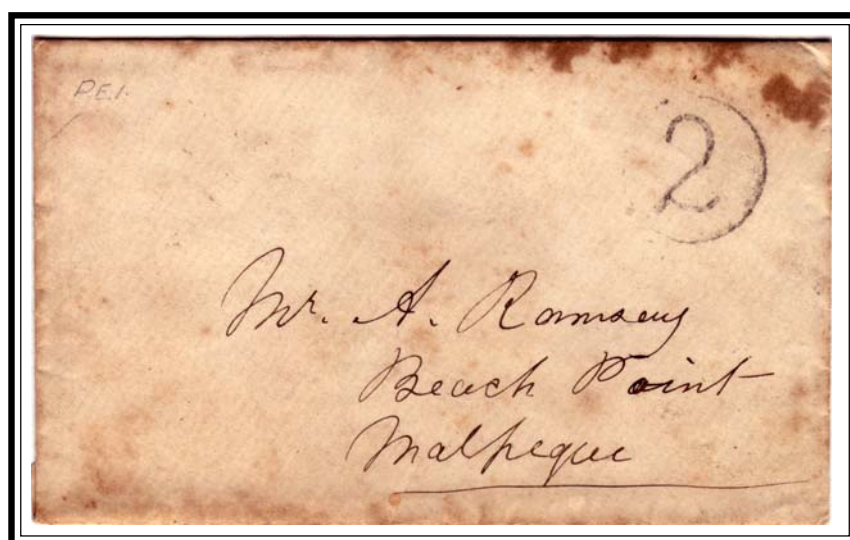 P.E.I.
2
Mr. A. Ramsey
Beach Point
Malpeque